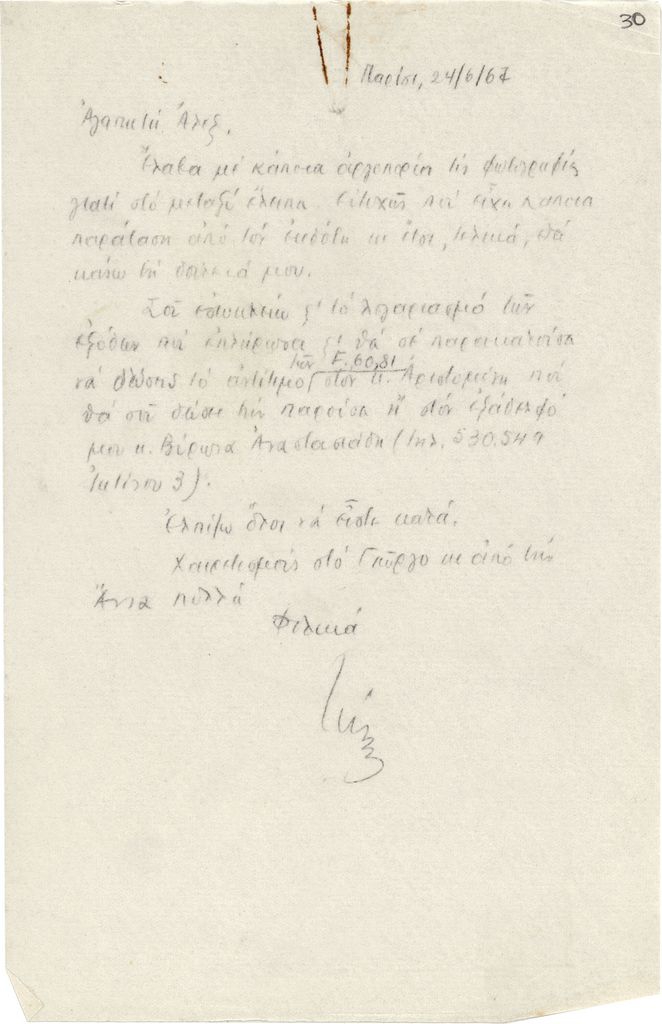 30
Παρίσι, 24/6/67
Ἀγαπητή Ἀλεξ,
Ἔλαβα μέ κάποια ἀργοπορία τίς φωτογραφίες
γιατί στό μεταξύ ἔλειπα. Εὐτυχῶς πού εἶχα κάποια
παράταση ἀπό τόν ἐκδότη κι ἔτσι, τελικά, θά
κάνω τή δουλειά μου.
Σοῦ ἐσωκλείω τό λογαριασμό τῶν
ἐξόδων πού ἐπλήρωσα θά σέ παρακαλοῦσα
νά δώσης τό ἀντίτιμο τῶν F. 60,81 στόν κ. Ἀριστομένη πού
θά σοῦ δώσει τήν παροῦσα ἤ στόν ἐξάδελφό
μου κ. Βύρωνα Ἀναστασιάδη (τηλ. 530.549
Ἰκτίνου 3).
Ἐλπίζω ὅλοι νά εἶστε καλά.
Χαιρετισμούς στό Γιῶργο κι ἀπό τήν
Ἄννα πολλά
Φιλικά